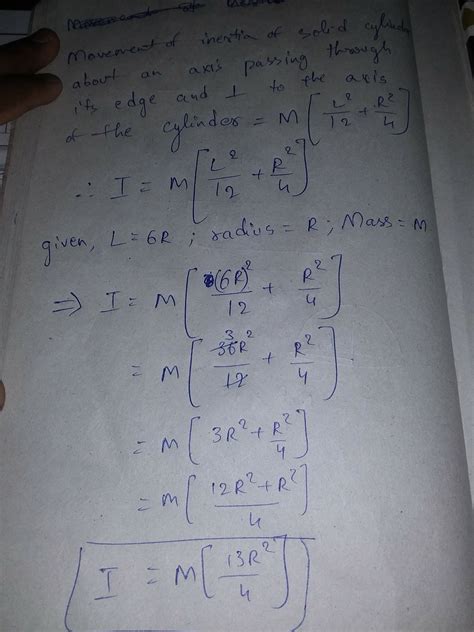 Movement of inertia of solid cylinder
about an axis passing through
its edge and ⊥ to the axis
of the cylinder = M[L²/12 + R²/4]
∴ I = M[L²/12 + R²/4]
given, L = 6R ; radius = R ; Mass = M
⇒ I = M[(6R)²/12 + R²/4]
= M[36R²/12 + R²/4] 3
= M[3R² + R²/4]
= M[12R² + R²/4]
I = M[13R²/4]